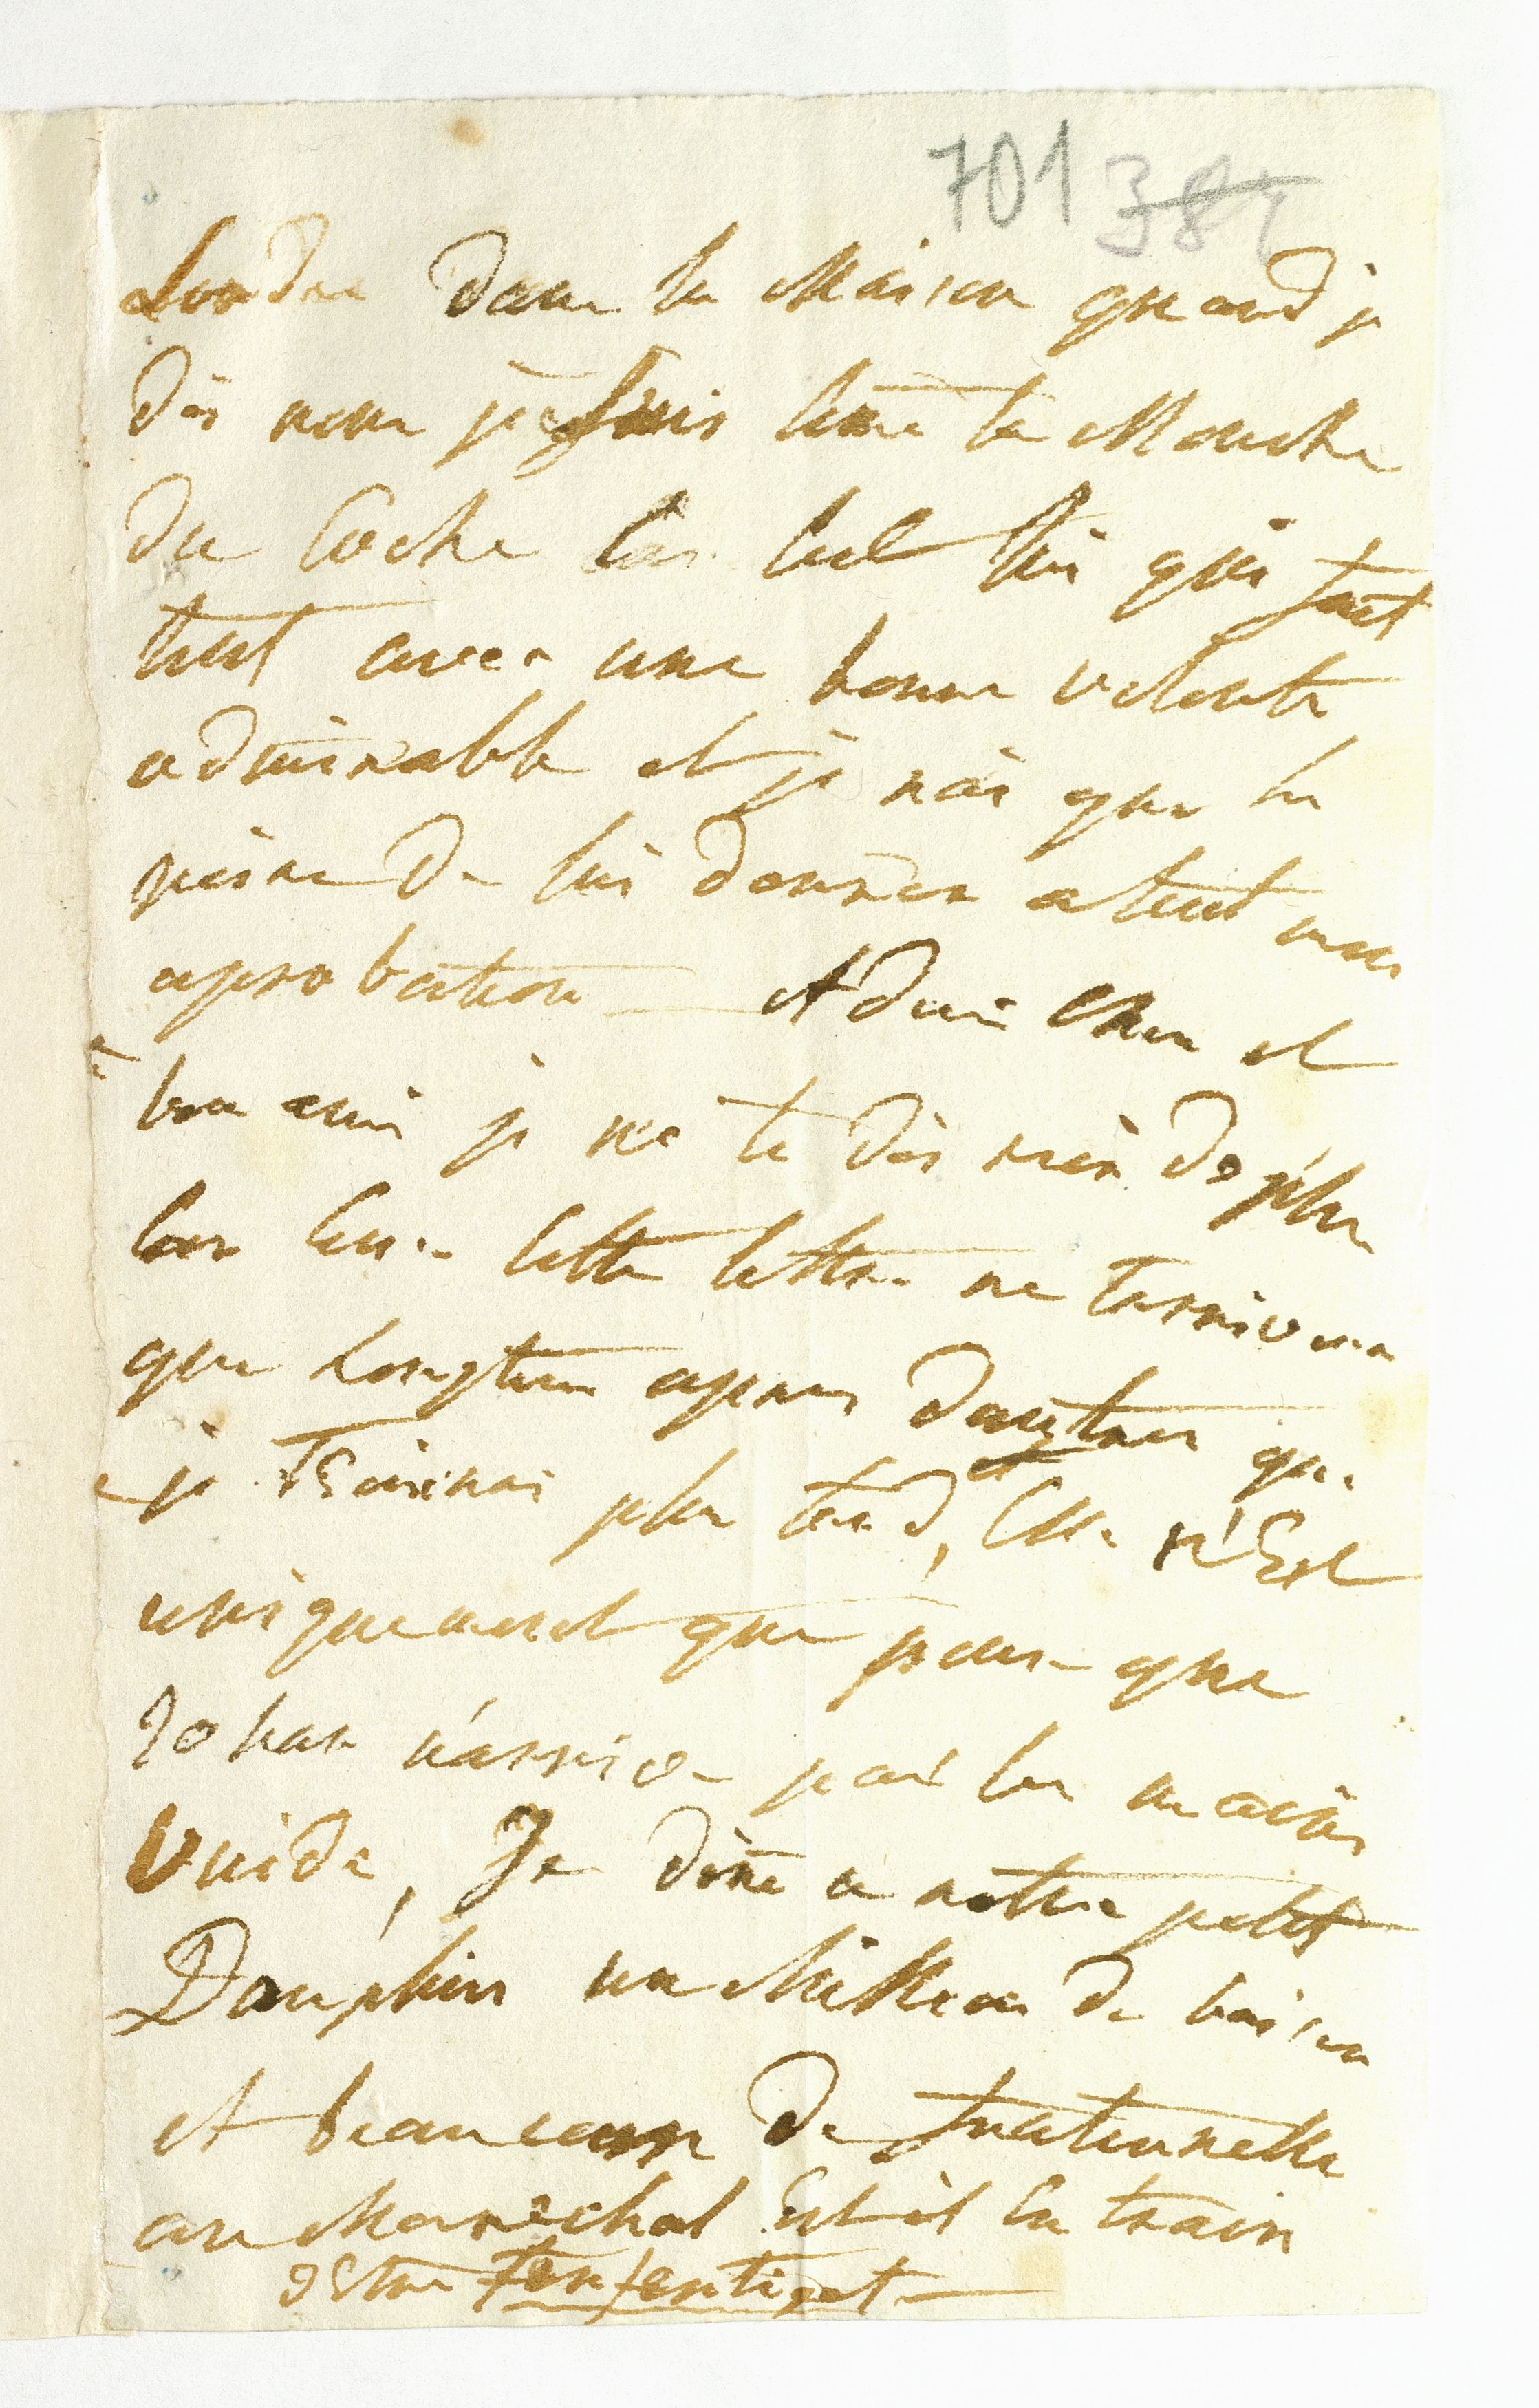 701 384
Londre dans la Maison quand je
dis nous je suis bien la Mouche
du Coche Car cest lui qui fait
tout avec une bonne volonte
admirable et je nai que la
peine de lui donner a tout mon
aprobation Adieu Cher et
bon ami je ne te dis rien de plus
Car cette lettre ne tarrivera
que Longtem apres dautres que
je Tecrirai plus tard, Elle n'Est
uniquement que pour que
Johan n'arrive pas les mains
vuide, Je done a notre petit
Dauphin un Million de baiser
et beaucoup de
au Marechal Est il En train
dEtre